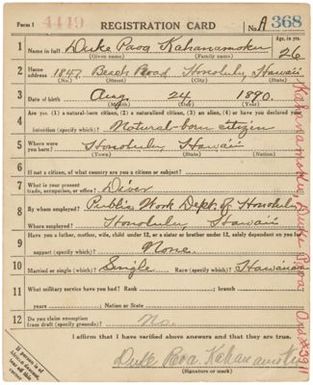 Form 1 4419 REGISTRATION CARD No. A 368
1 Name in full Duke Paoa Kahanamoku Age, in yrs. 26
(Given name) (Family name)
2 Home address 1847 Beach Road, Honolulu, Hawaii
(No.) (Street) (City) (State)
3 Date of birth Aug. 24 1890.
(Month) (Day) (Year)
Are you (1) a natural-born citizen, (2) a naturalized citizen, (3) an alien, (4) or have you declared your
4 intention (specify which)? Natural-born citizen
5 Where were you born? Honolulu, Hawaii
(Town) (State) (Nation)
6 If not a citizen, of what country are you a citizen or subject?
7 What is your present trade, occupation, or office?
8 By whom employed? Public Work Dept. of Honolulu
Where employed? Honolulu, Hawaii
Have you a father, mother, wife, child under 12, or a sister or brother under 12, solely dependent on you for
9 support (specify which)? None.
10 Married or single (which)? Single Race (specify which)? Hawaiian
11 What military service have you had? Rank
branch
years Nation or State
12 Do you claim exemption from draft (specify grounds)? No.
I affirm that I have verified above answers and that they are true.
Duke Paoa Kahanamoku
(Signature or mark)
If person is of African descent,
Kahanamoku, Duke Paoa